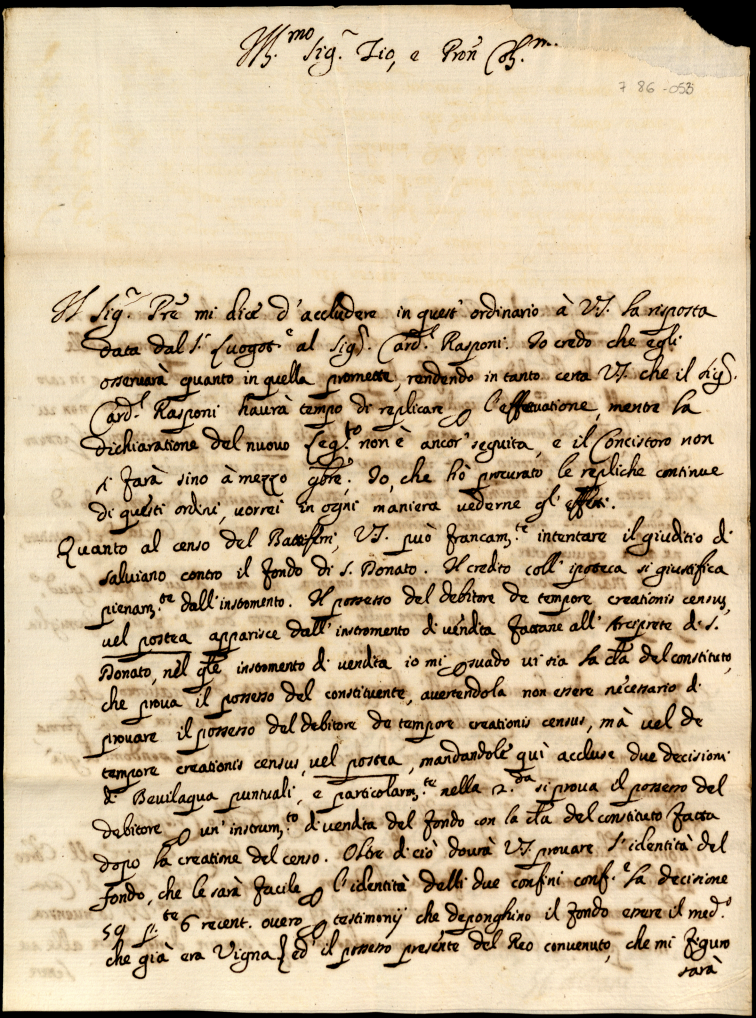 Ill.mo Sig.r Zio, e Pron Col.m.
7 86-053
Il Sig.r Prē mi dice d'accludere in quest'ordinario à V.S. la risposta
data dal S.r Luogot.e al Sig.r Card.l Rasponi. Io credo che egli
osservarà quanto in quella promette, rendendo in tanto certa V.S. che il Sig.r
Card.l Rasponi haurà tempo di replicare p l'effettuatione, mentre la
dichiaratione del nuovo Leg.to non è ancor' seguita, e il Concistoro non
si farà sino à mezzo 9bre. Io, che hò procurato le repliche continue
di questi ordini, vorrei in ogni maniera vederne gl'effetti.
Quanto al censo del Battistini, V.S. può francam.te intentare il giuditio di
salviano contro il fondo di S. Donato. Il credito coll'ipoteca si giustifica
pienam.te dall'instromento. Il possesso del debitore de tempore creationis census,
vel postea apparisce dall'instromento di vendita fattane all'Arciprete di S.
Donato, nel qle instromento di vendita io mi psuado vi sia la cla del constituto,
che prova il possesso del constituente, avertendola non essere necessario di
provare il possesso del debitore de tempore creationis census, mà vel de
tempore creationis census, vel postea, mandandole quì accluse due decisioni
di Bevilaqua puntuali, e particolarm.te nella 2.da si prova il possesso del
debitore p un'instrum.to di vendita del fondo con la cla del constituto fatta
dopo la creatione del censo. Oltre di ciò dovrà V.S. provare l'identità del
fondo, che le sarà facile p l'identità delli due confini conf.e la decisione
59 p.te 6 recent. overo p testimonij che deponghino il fondo essere il med.o
che già era Vigna, ed il possesso presente del Reo convenuto, che mi figuro
sarà